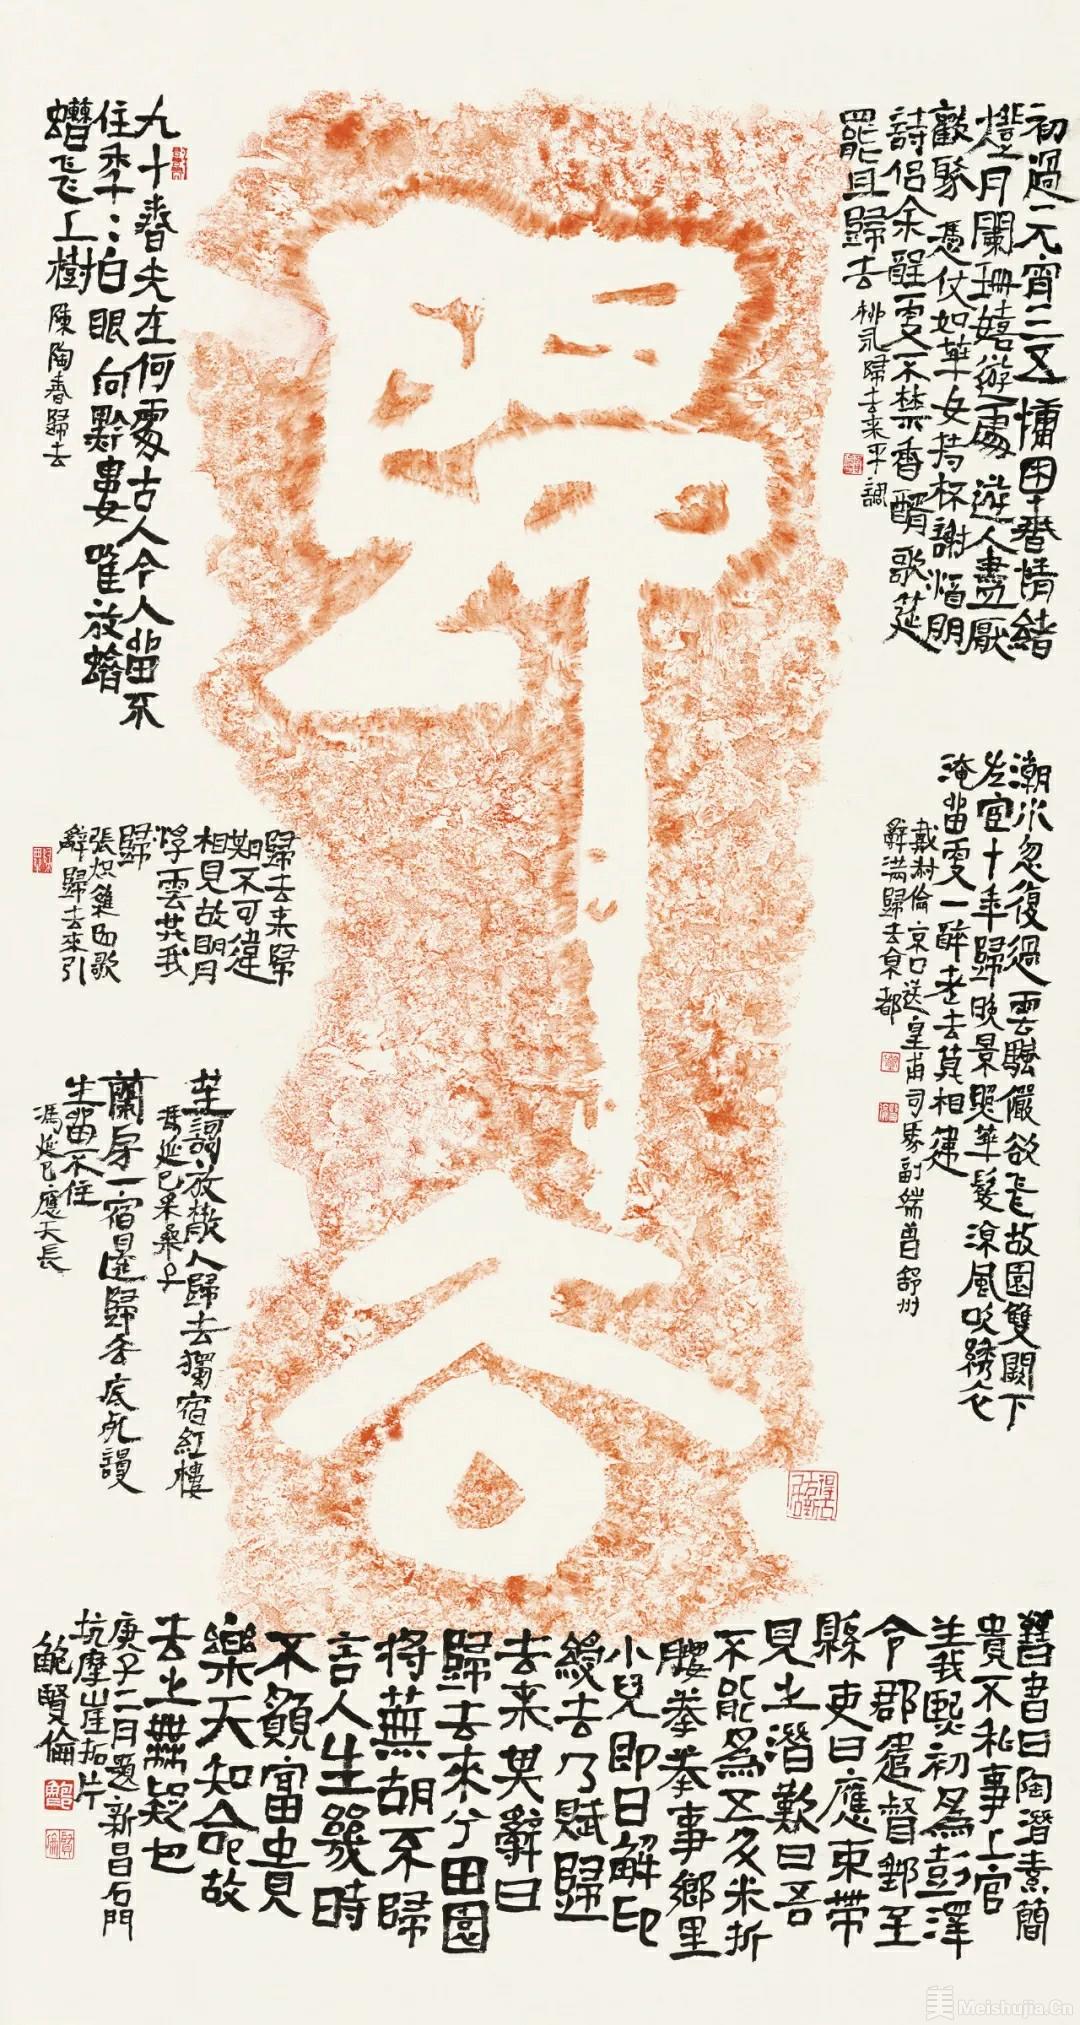 初過元宵三五慵困春情緒
燈月闌珊嬉遊處遊人盡厭
歡聚憑仗如華女持杯謝焰朋
詩侶余酲更不禁香醑歌筵
罷且歸去
柳永歸去来平調
潮水忽復過雲驅儼欲飛故園雙闕下
左宦十年歸晚景照華髮涼風吹綉衣
淹留更一醉老去莫相違
戴叔倫京口送皇甫司馬副端曽舒州
辭滿歸去東都
九十春夫在何處古人今人留不
住年年白眼向黔婁唯放蠐
螬飛上樹
陳陶春歸去
歸去来歸
期不可違
相見故明月
浮雲共我
歸
張熾雜曲歌
辭歸去來引
笙調放散人歸去獨宿紅樓
馮延巳采桑子
蘭房一宿還歸去底死謾
生留不住
馮延巳應天長
得古
舊書曰陶潛素簡
貴不私事上官
義熙初為彭澤
令郡遣督郵至
縣吏曰應束帶
見之潛歎曰吾
不能為五斗米折
腰拳拳事鄉里
小兒即日解印
綬去乃賦歸
去来其辭曰
歸去來兮田園
将蕪胡不歸
言人生幾時
不顧富貴
樂天知命故
去之無疑也
庚子二月題新昌石門
坑摩崖拓片
鮑賢倫
美 Meishujia.Cn